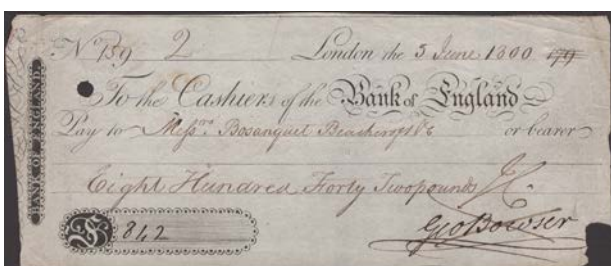 No. 159 2 London the 5 June 1800 179
To the Cashiers of the Bank of England
Pay to Messrs. Bosanquet Beachcroft & Co or bearer
Eight Hundred Forty Two pounds
£ 842
Geo Bowser
BANK OF ENGLAND.